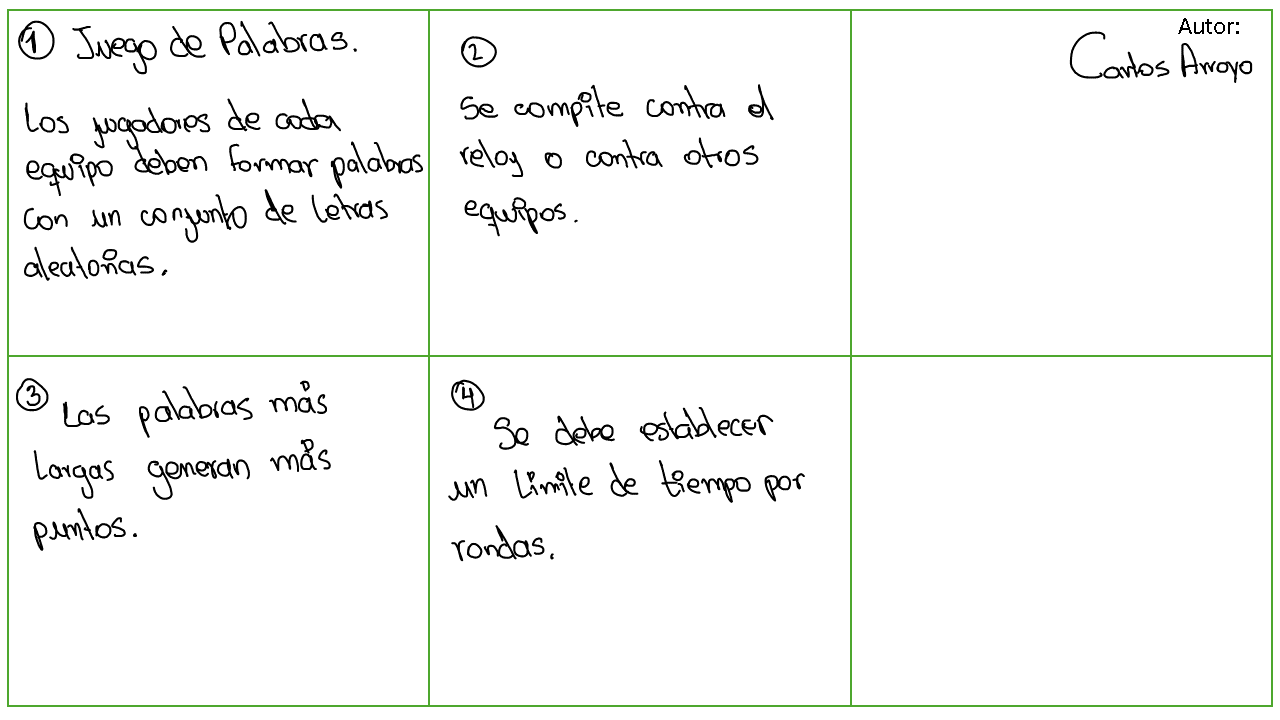 ① Juego de Palabras.
Los jugadores de cada
equipo deben formar palabras
con un conjunto de letras
aleatorias.
②
Se compite contra el
reloj o contra otros
equipos.
Autor:
Carlos Arroyo
③ Las palabras más
largas generan más
puntos.
④
Se debe establecer
un límite de tiempo por
rondas.